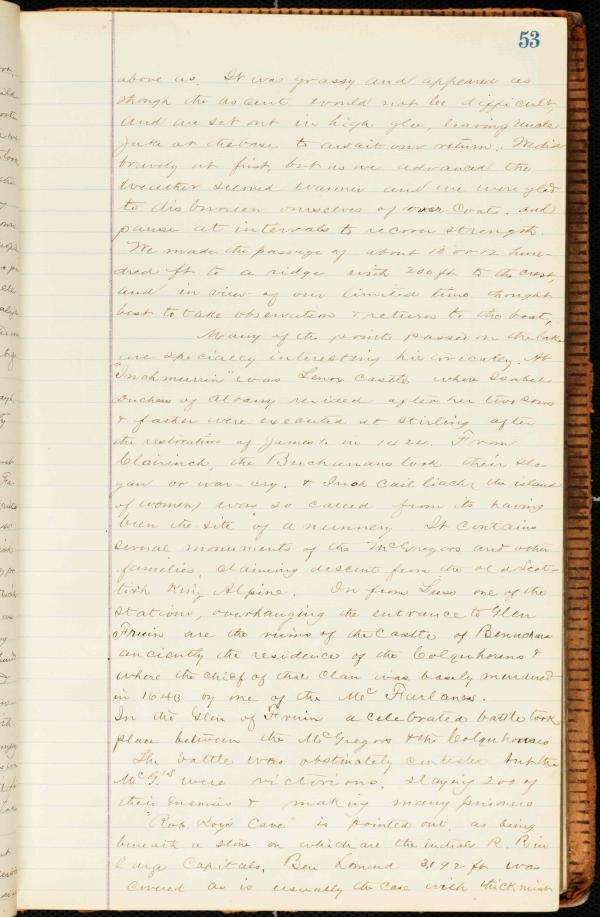 53
above us. It was grassy and appeared as
though the ascent would not be difficult,
and we set out in high glee, leaving Uncle
Jake at the base to await our return. We did
bravely at first, but as we advanced the
weather seemed warmer and we were glad
to disburden ourselves of over coats. and
pause at intervals to recover strength.
We made the passage of about 10 or 12 hun-
dred ft to a ridge with 200 ft to the crest,
and in view of our limited time thought
best to take observation & return to the boat,
Many of the points passed on the lake
are specially interesting historically. At
"Inchmurrin" was Lenox Castle where Isabel
Duchess of Albany resided after her two sons
& father were executed at Stirling after
the restoration of James 1. in 1424. From
Clairinch, the Buchanans took their slo-
gan or war-cry. & Inch Cailliach (the island
of women) was so called from its having
been the site of a nunnery It contains
several monuments of the McGregors and other
families, claiming descent from the old Scot-
tish King Alpine. In from Luss one of the
stations, overhanging the entrance to Glen
Fruin are the ruins of the Castle of Bennchara
anciently the residence of the Colquhouns &
where the chief of that Clan was basely murdered
in 1640 by one of the Mc Farlanes.
In the Glen of Fruin a celebrated battle took
place between the McGregors & the Colquhouns
The battle was obstinately contested but the
McG.rs were victorious. slaying 200 of
their enemies & making many prisoners
"Rob. Roy's Cave" is pointed out, as being
beneath a stone on which are the initials R. R in
large Capitals. Ben Lomond 3,192 ft was
covered as is usually the case with thick mist